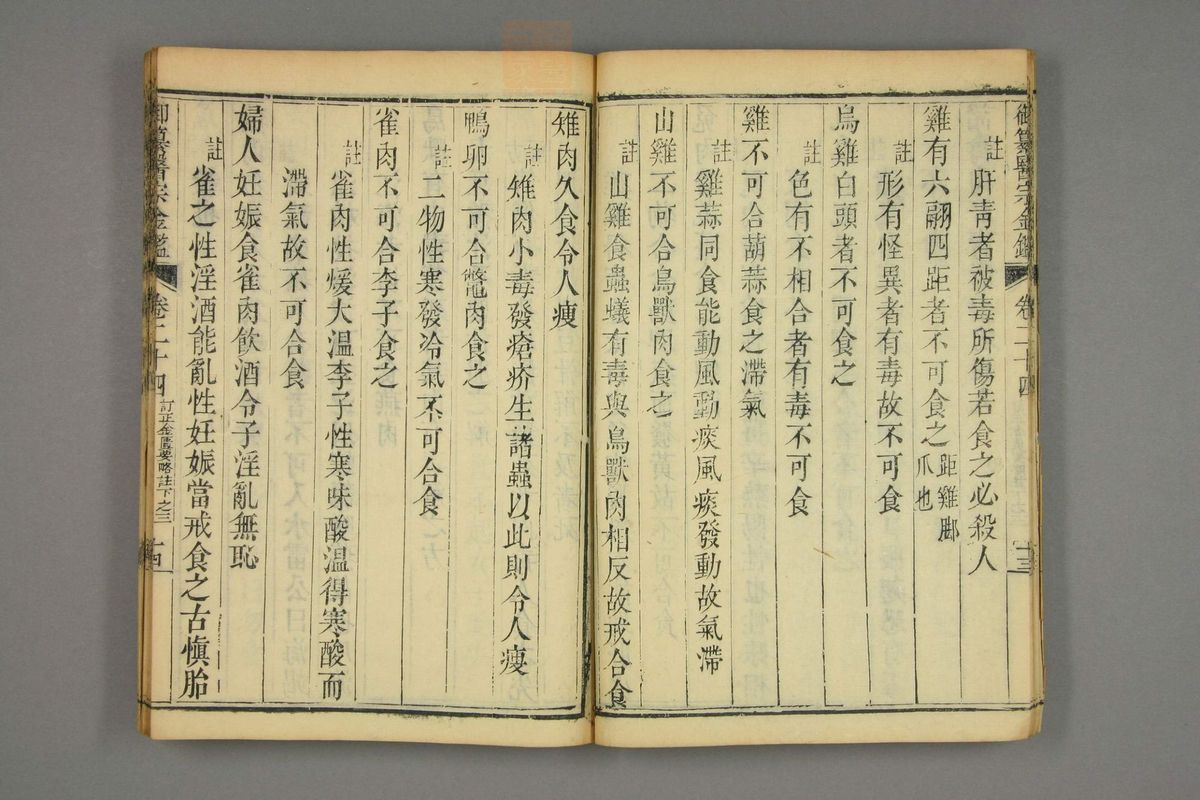 御纂醫宗金鑑
卷二十四
十三
註肝青者被毒所傷若食之必殺人
雞有六翮四距者不可食之
距雞腳
爪也
註形有怪異者有毒故不可食
烏雞白頭者不可食之
註色有不相合者有毒不可食
雞不可合葫蒜食之滯氣
註雞蒜同食能動風動痰風痰發動故氣滯
山雞不可合鳥獸肉食之
註山雞食蟲蟻有毒與鳥獸肉相反故戒合食
雉肉久食令人瘦
註雉肉小毒發瘡疥生諸蟲以此則令人瘦
鴨卵不可合鼈肉食之
註二物性寒發冷氣不可合食
雀肉不可合李子食之
註雀肉性煖大溫李子性寒味酸溫得寒酸而
滯氣故不可合食
婦人妊娠食雀肉飲酒令子淫亂無恥
註雀之性淫酒能亂性妊娠當戒食之古愼胎
御纂醫宗金鑑
卷二十四
訂正金匱要略註下之三
十四